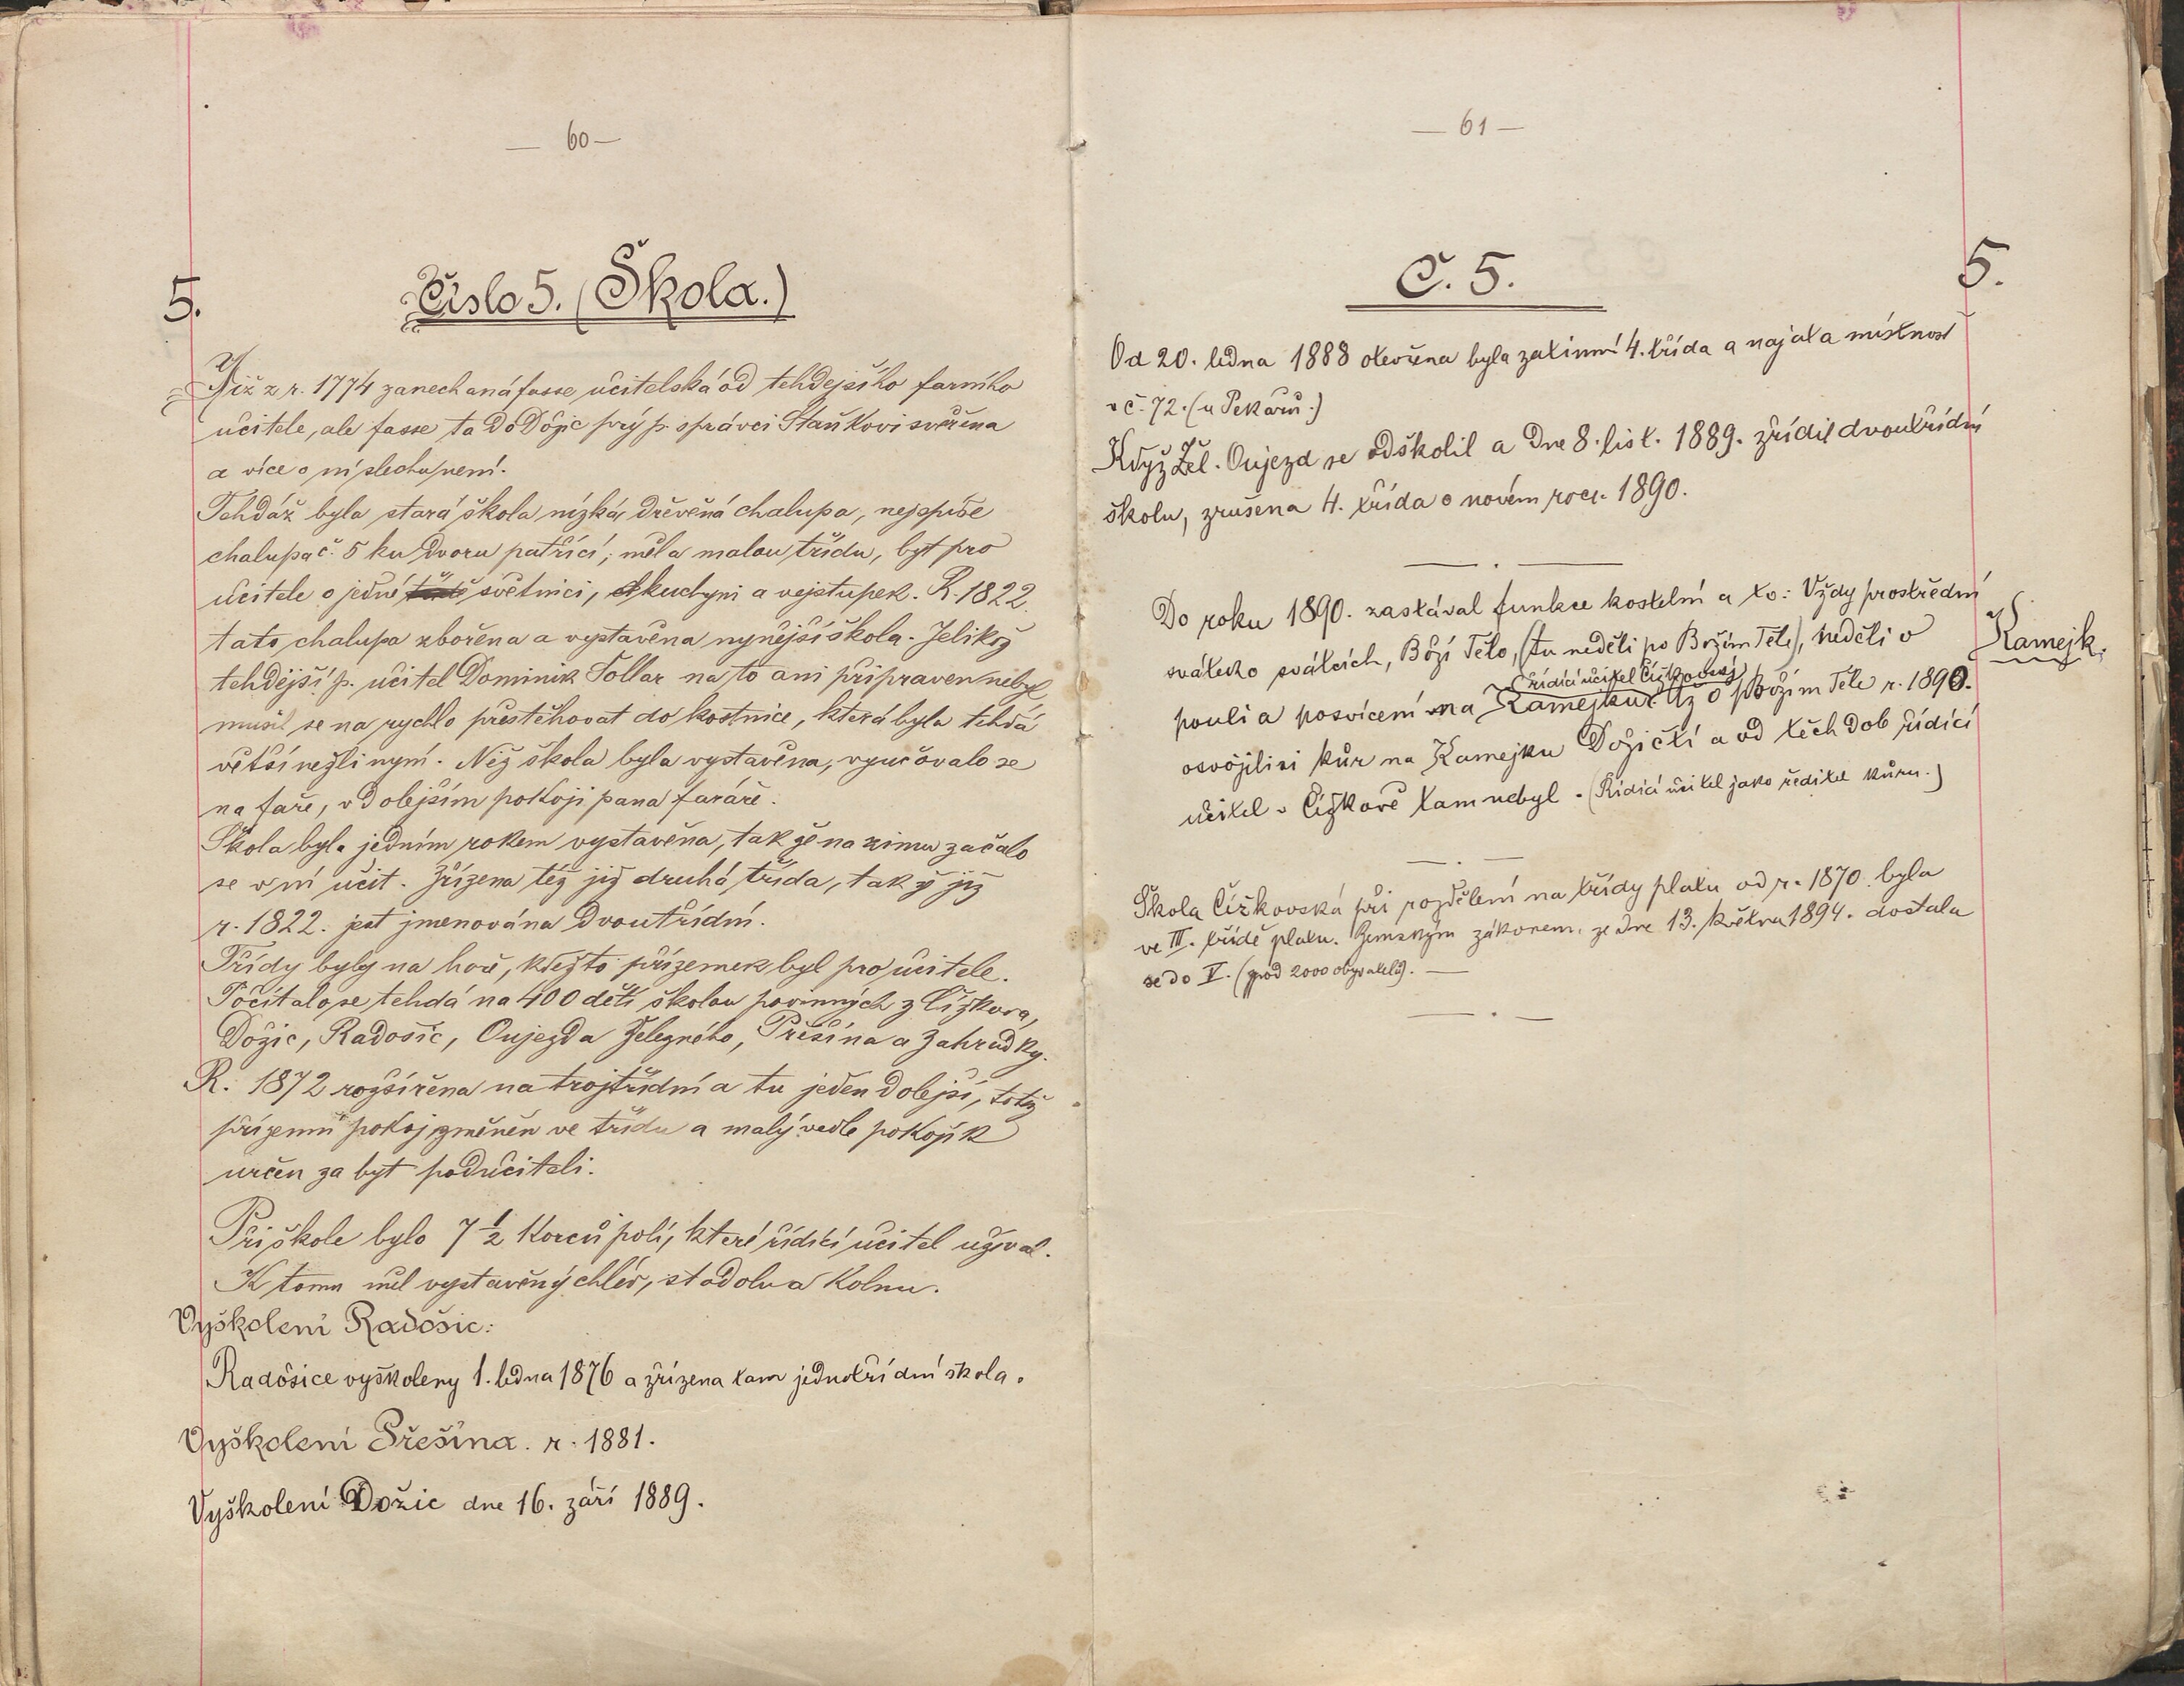 — 60 —
5.
Číslo 5. (Škola.)
Již z r. 1774 zanechaná fasse učitelská od tehdejšího farního
učitele, ale fasse ta do Dožic prý p. správci Staňkovi svěřena
a více o ní slechu není.
Tehdáž byla stará škola nízká, dřevěná chalupa, nejspíše
chalupa č. 5 ku dvoru patřící; měla malou třídu, byt pro
učitele o jedné světnici, kuchyni a vejstupek. R. 1822.
tato chalupa zbořena a vystavěna nynější škola. Jelikož
tehdejší p. učitel Dominik Tollar na to ani připraven nebyl,
musil se na rychlo přestěhovat do kostnice, která byla tehdá
větší nežli nyní. Než škola byla vystavěna, vyučovalo se
na faře, v dolejším pokoji pana faráře.
Škola byla jedním rokem vystavěna, tak že na zimu začalo
se v ní učit. Zřízena též již druhá třída, tak že již
r. 1822. jest jmenována dvoutřídní.
Třídy byly na hoře, kdežto přízemek byl pro učitele.
Počítalo se tehdá na 400 dětí školou povinných z Čížkova,
Dožic, Radošic, Oujezda Železného, Přešína a Zahrádky.
R. 1872 rozšířena na trojtřídní a tu jeden dolejší, totiž
přízemní pokoj změněn ve třídu a malý vedle pokojík
určen za byt podučiteli.
Při škole bylo 7 1/2 korců polí, které řídící učitel užíval.
K tomu měl vystavěný chlév, stodolu a kolnu.
Vyškolení Radošic:
Radošice vyškoleny 1. ledna 1876 a zřízena tam jednotřídní škola.
Vyškolení Přešína. r. 1881.
Vyškolení Dožic dne 16. září 1889.
— 61 —
Č. 5.
5.
Od 20. ledna 1888 otevřena byla zatimní 4. třída a najata místnost
v č. 72. (u Pekařů.)
Když Žel. Oujezd se odškolil a dne 8. list. 1889. zřídil dvoutřídní
školu, zrušena 4. třída o novém roce 1890.
Do roku 1890. zastával funkce kostelní a to: Vždy prostřední
svátek o svátcích, Boží Tělo, (tu neděli po Božím Těle), neděli o
Kamejk.
řídící učitel Čížkovský
pouti a posvícení na Kamejku. Až o Božím Těle r. 1890.
osvojili si kůr na Kamejku Dožičtí a od těch dob řídící
učitel v Čížkově tam nebyl. (Řídící učitel jako ředitel kůru.)
Škola Čížkovská při rozdělení na třídy platu od r. 1870 byla
ve III. třídě platu. Zemským zákonem ze dne 13. května 1894. dostala
se do V. (pod 2000 obyvatelů). —